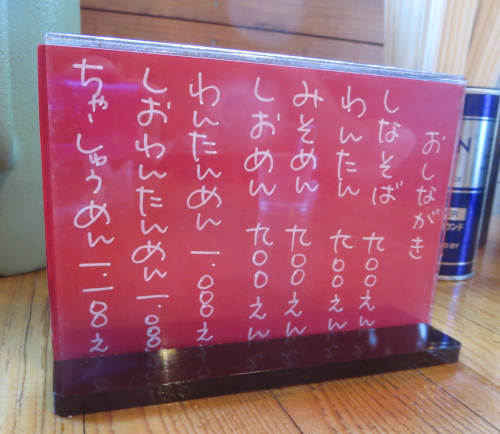 おしながき
しなそば 九〇〇えん
わんたん 九〇〇えん
みそめん 九〇〇えん
しおめん 九〇〇えん
わんたんめん 一.〇八〇え
しおわんたんめん 一.〇八〇
ちゃーしゅうめん 一.一八〇え